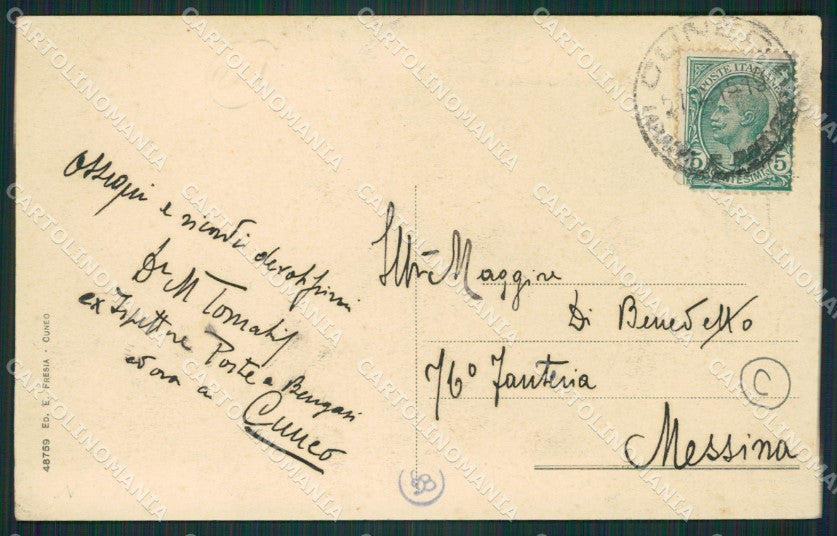 Ossequi e ricordi devotissimi
Dr M Tomatis
ex Ispettore Poste a Bengasi
ed ora a
Cuneo
48759 ED. E. FRESIA - CUNEO
POSTE ITALIANE
5 CENTESIMI 5
CUNEO
Ill.mo Maggiore
Di Benedetto
76º Fanteria
Messina
C
88
CARTOLINOMANIA